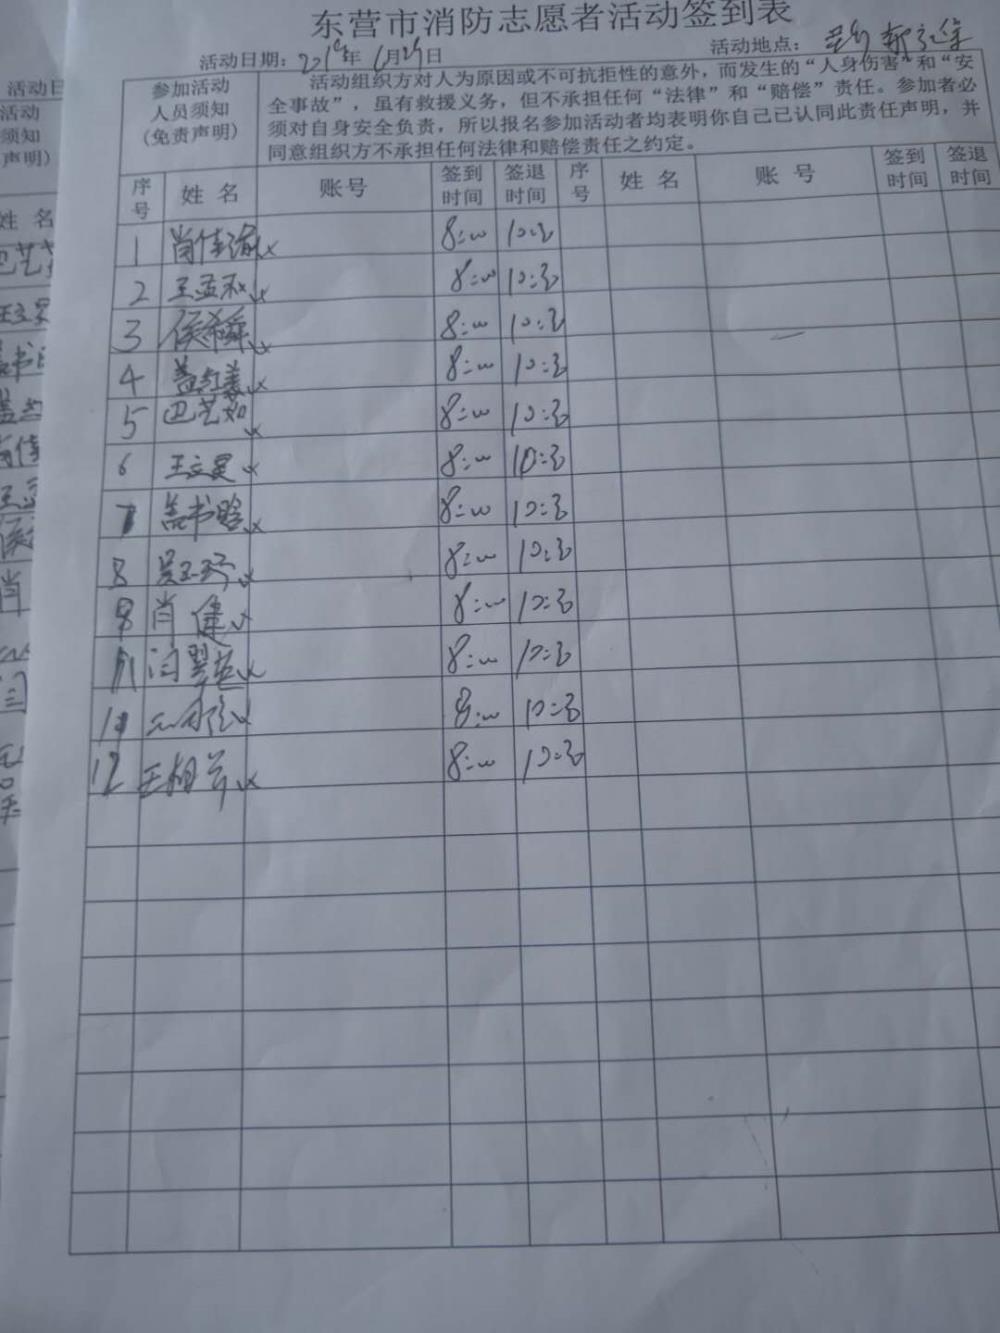 东营市消防志愿者活动签到表
活动日期：2019年6月29日 活动地点：
参加活动人员须知(免责声明)
活动组织方对人为原因或不可抗拒性的意外，而发生的“人身伤害”和“安
全事故”，虽有救援义务，但不承担任何“法律”和“赔偿”责任。参加者必
须对自身安全负责，所以报名参加活动者均表明你自己已认同此责任声明，并
同意组织方不承担任何法律和赔偿责任之约定。
序号 姓名 账号 签到时间 签退时间 序号 姓名 账号 签到时间 签退时间
1 肖佳瑜 8:00 10:30
2 王孟和 8:00 10:30
3 侯希舜 8:00 10:30
4 盖红美 8:00 10:30
5 巴艺茹 8:00 10:30
6 王文昊 8:00 10:30
7 盖书晗 8:00 10:30
8 吴玉琦 8:00 10:30
9 肖健 8:00 10:30
8:00 10:30
11 8:00 10:30
12 王相芹 8:00 10:30